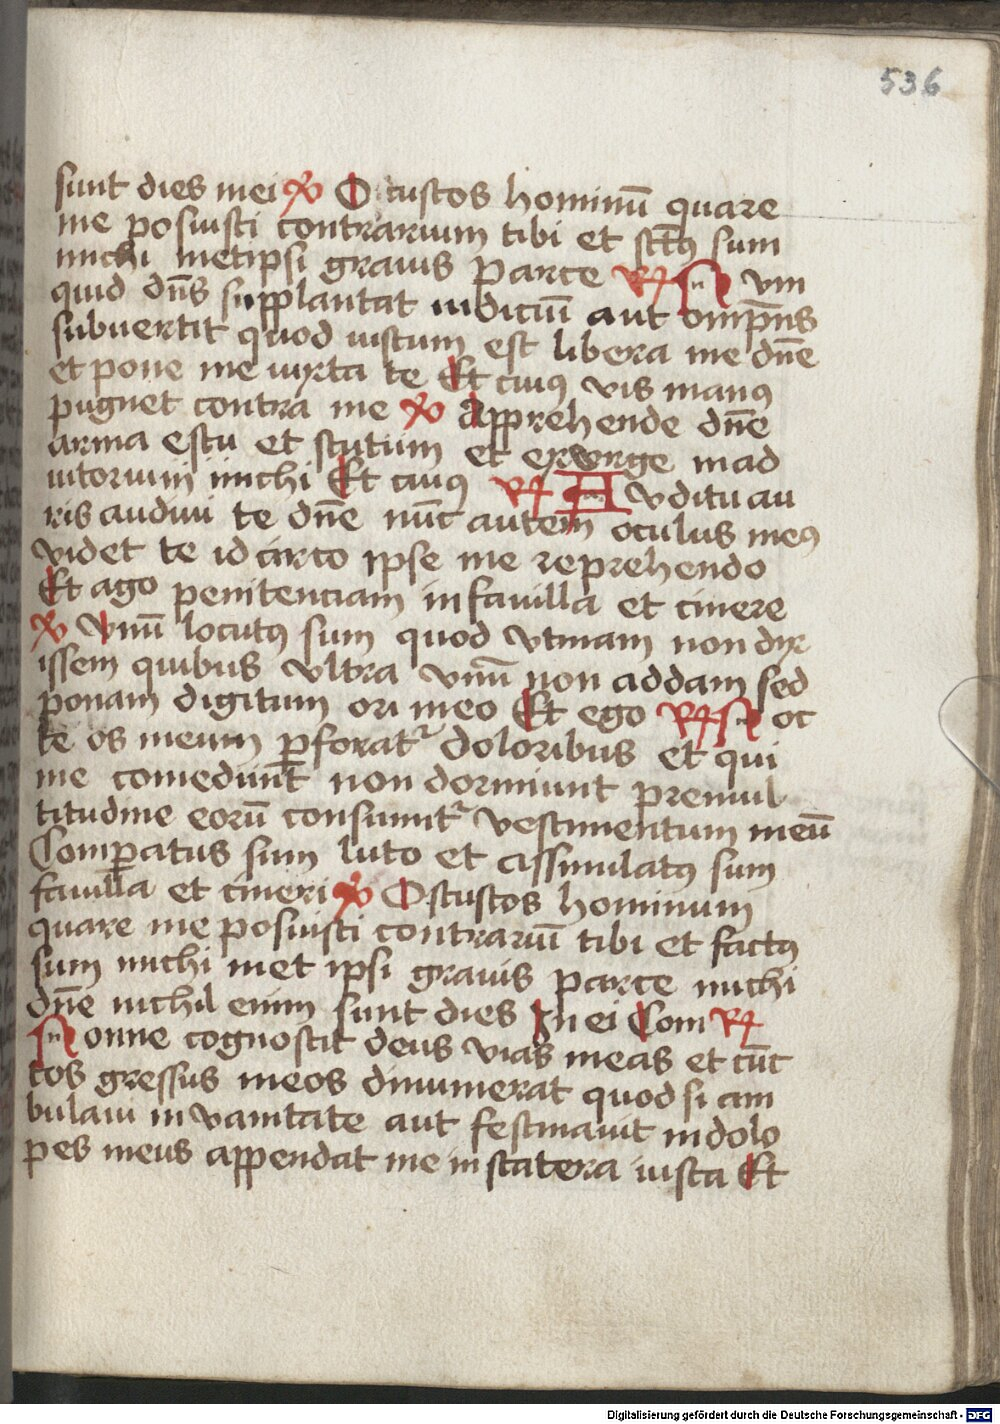 536
sunt dies mei ℣ O custos hominū quare
me posuisti contrarium tibi et fctūs sum
michi metipsi grauis Parce ℟ Num
quid dn̄s supplantat iudiciū aut omp̄ns
subuertit quod iustum est libera me dn̄e
et pone me iuxta te Et cuiꝰ vis manꝰ
pugnet contra me ℣ Apprehende dn̄e
arma et scutum et exurge in ad
iutorium michi Et cuiꝰ ℟ Auditu au
ris audiui te dn̄e nūc autem oculus meꝰ
videt te id circo ipse me reprehendo
Et ago penitenciam in fauilla et cinere
℣ Vnū locutꝰ sum quod vtinam non dix
issem quibus vltra vnū non addam sed
ponam digitum ori meo Et ego ℟ Noc
te os meum ꝑforatᷣ doloribus et qui
me comedūt non dormiunt pre mul
titudine eorū consumitᷣ vestimentum meū
Comꝑatus sum luto et assimilatꝰ sum
fauilla et cineri ℣ O custos hominum
quare me posuisti contrariū tibi et factꝰ
sum michi met ipsi grauis parce michi
dn̄e nichil enim sunt dies mei Com ℟
Nonne cognoscit deus vias meas et cūc
tos gressus meos dinumerat quod si am
bulaui in vanitate aut festinauit in dolo
pes meus appendat me in statera iusta Et
Digitalisierung gefördert durch die Deutsche Forschungsgemeinschaft - DFG